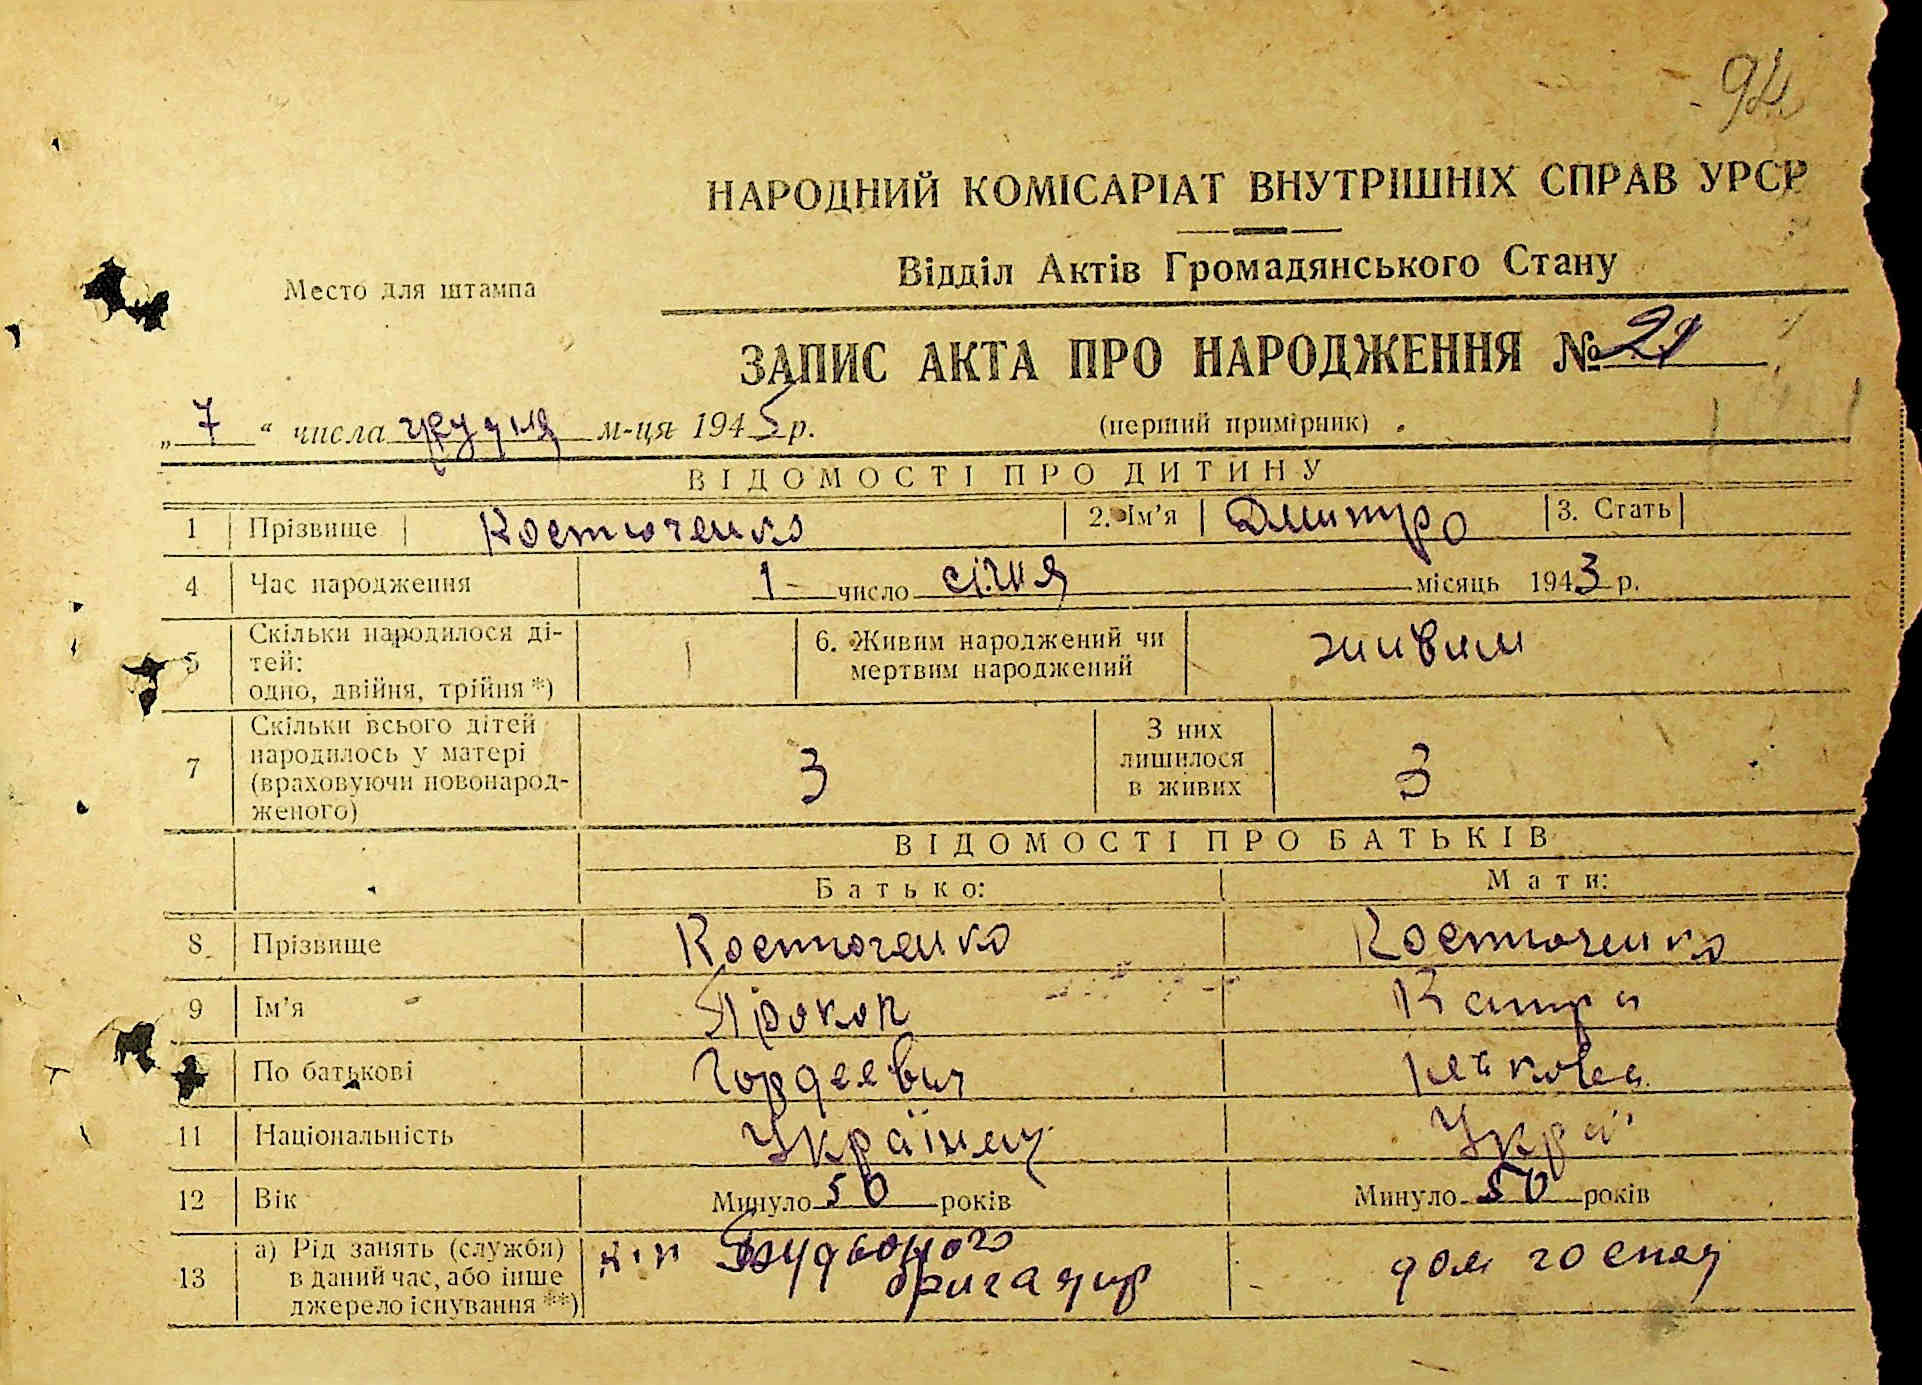 94
НАРОДНИЙ КОМІСАРІАТ ВНУТРІШНІХ СПРАВ УРСР
Відділ Актів Громадянського Стану
Место для штампа
ЗАПИС АКТА ПРО НАРОДЖЕННЯ № 21
„7“ числа грудня м-ця 1945 р. (перший примірник)
ВІДОМОСТІ ПРО ДИТИНУ
1 Прізвище Костюченко 2. Ім'я Дмитро 3. Стать
4 Час народження 1 число січня місяць 1943 р.
5 Скільки народилося ді-
тей:
одно, двійня, трійня *) 1 6. Живим народжений чи
мертвим народжений живим
7 Скільки всього дітей
народилось у матері
(враховуючи новонарод-
женого) 3 З них
лишилося
в живих 3
ВІДОМОСТІ ПРО БАТЬКІВ
Батько: Мати:
8 Прізвище Костюченко Костюченко
9 Ім'я Прокоп Катря
По батькові Гордеевич
11 Національність Українец Укра
12 Вік Минуло 50 років Минуло 50 років
13 а) Рід занять (служби)
в даний час, або інше
джерело існування **) к-п Будьоного
бригадир дом господ